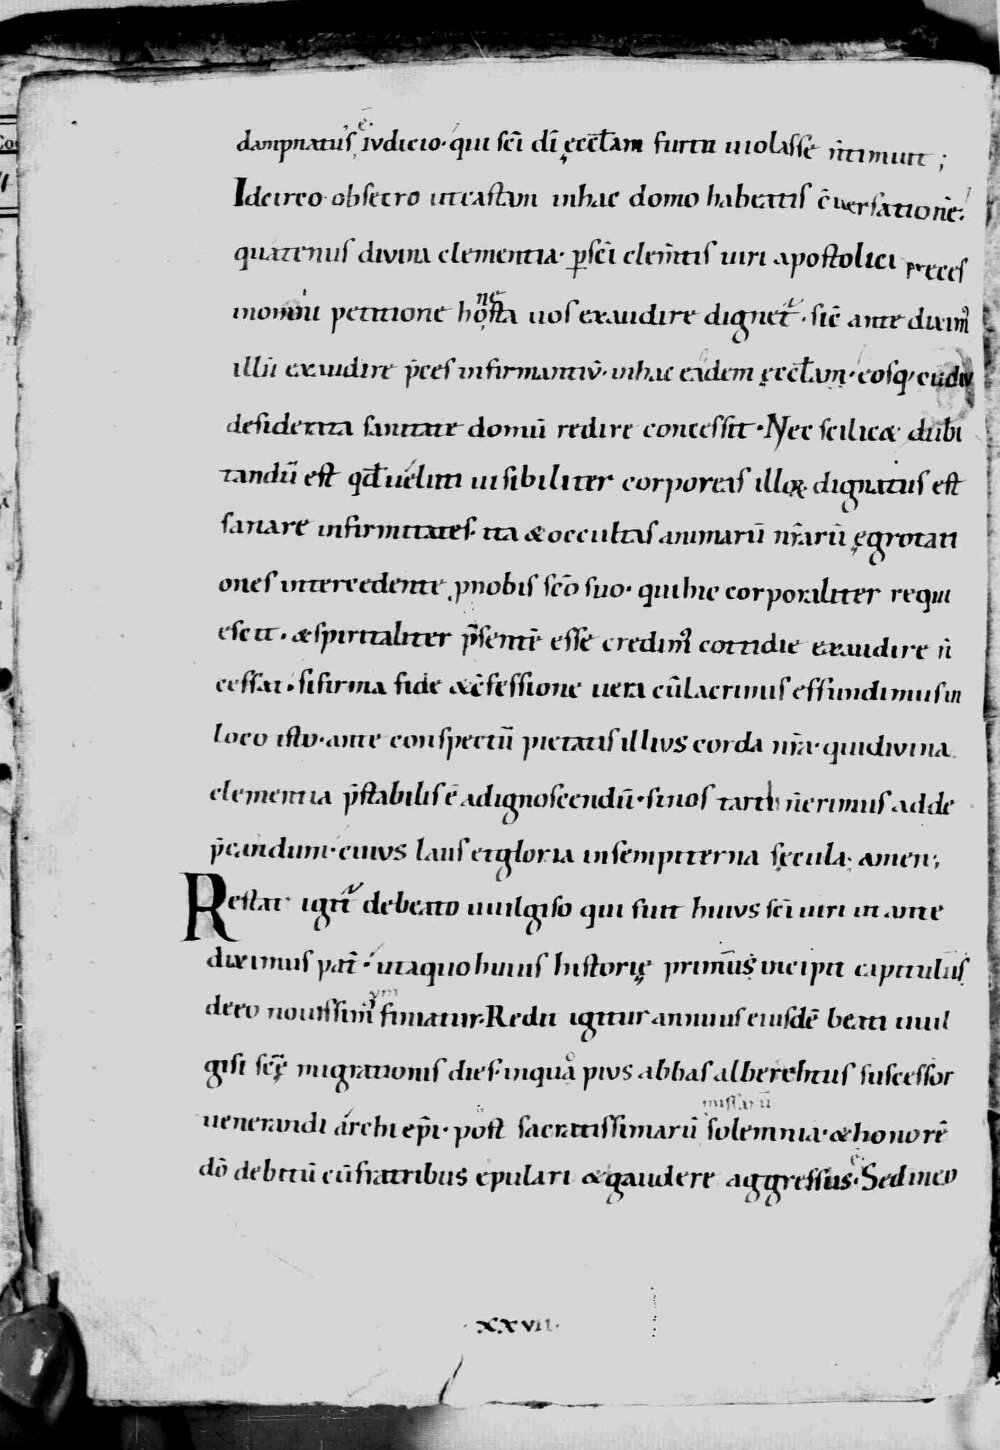 dampnatus ē iudicio· qui sc̄i dī ęccl̄am furtu uiolasse n̄ timuit;
Idcirco obsecro ut castam in hac domo habeatis c̄uersationē·
quatenus divina clementia· p̱ sc̄i clem̄tis uiri apostolici preces
in om̄i petitione honęsta uos exaudire dignet᷑· sic̄ ante diximꝰ
illū exaudire p̄ces infirmantiū· in hac eadem ęccl̄am· eosq· cū diu
desiderata sanitate domū redire concessit· Nec scilicet dubi
tandū est qd̄ uelut uisibiliter corporeas illoꝝ dignatus est
sanare infirmitates· ita & occultas animarū nr̄arū ęgrotati
ones intercedente ꝓ nobis sc̄o suo· qui hic corporaliter requi
escit· & spiritaliter p̄sentē esse credimꝰ cottidie exaudire n̄
cessat· si firma fide & c̄fessione uera cū lacrimis effundimus in
loco isto· ante conspectū pietatis illius corda nr̄a· qui divina
clementia p̄stabilis ē ad ignoscendū· si nos tardi n̄ erimus ad de
p̄candum· cuius laus et gloria in sempiterna sęcula· amen;
Restat igit᷑ de beato uuilgiso qui fuit huius sc̄i uiri ut ante
diximus pat̄· ut a quo huius historię primus incipit capitulus
de eo nouissimum finiatur· Redit igitur annuus eiusdē beati uuil
gisi sc̄ę migrationis dies· in qua pius abbas alberehtus successor
uenerandi archiep̄i· post sacratissimarū missarū solemnia· & honorē
dō debitū cū fratribus epulari & gaudere aggressus ē· Sed in eo
·xxvii·